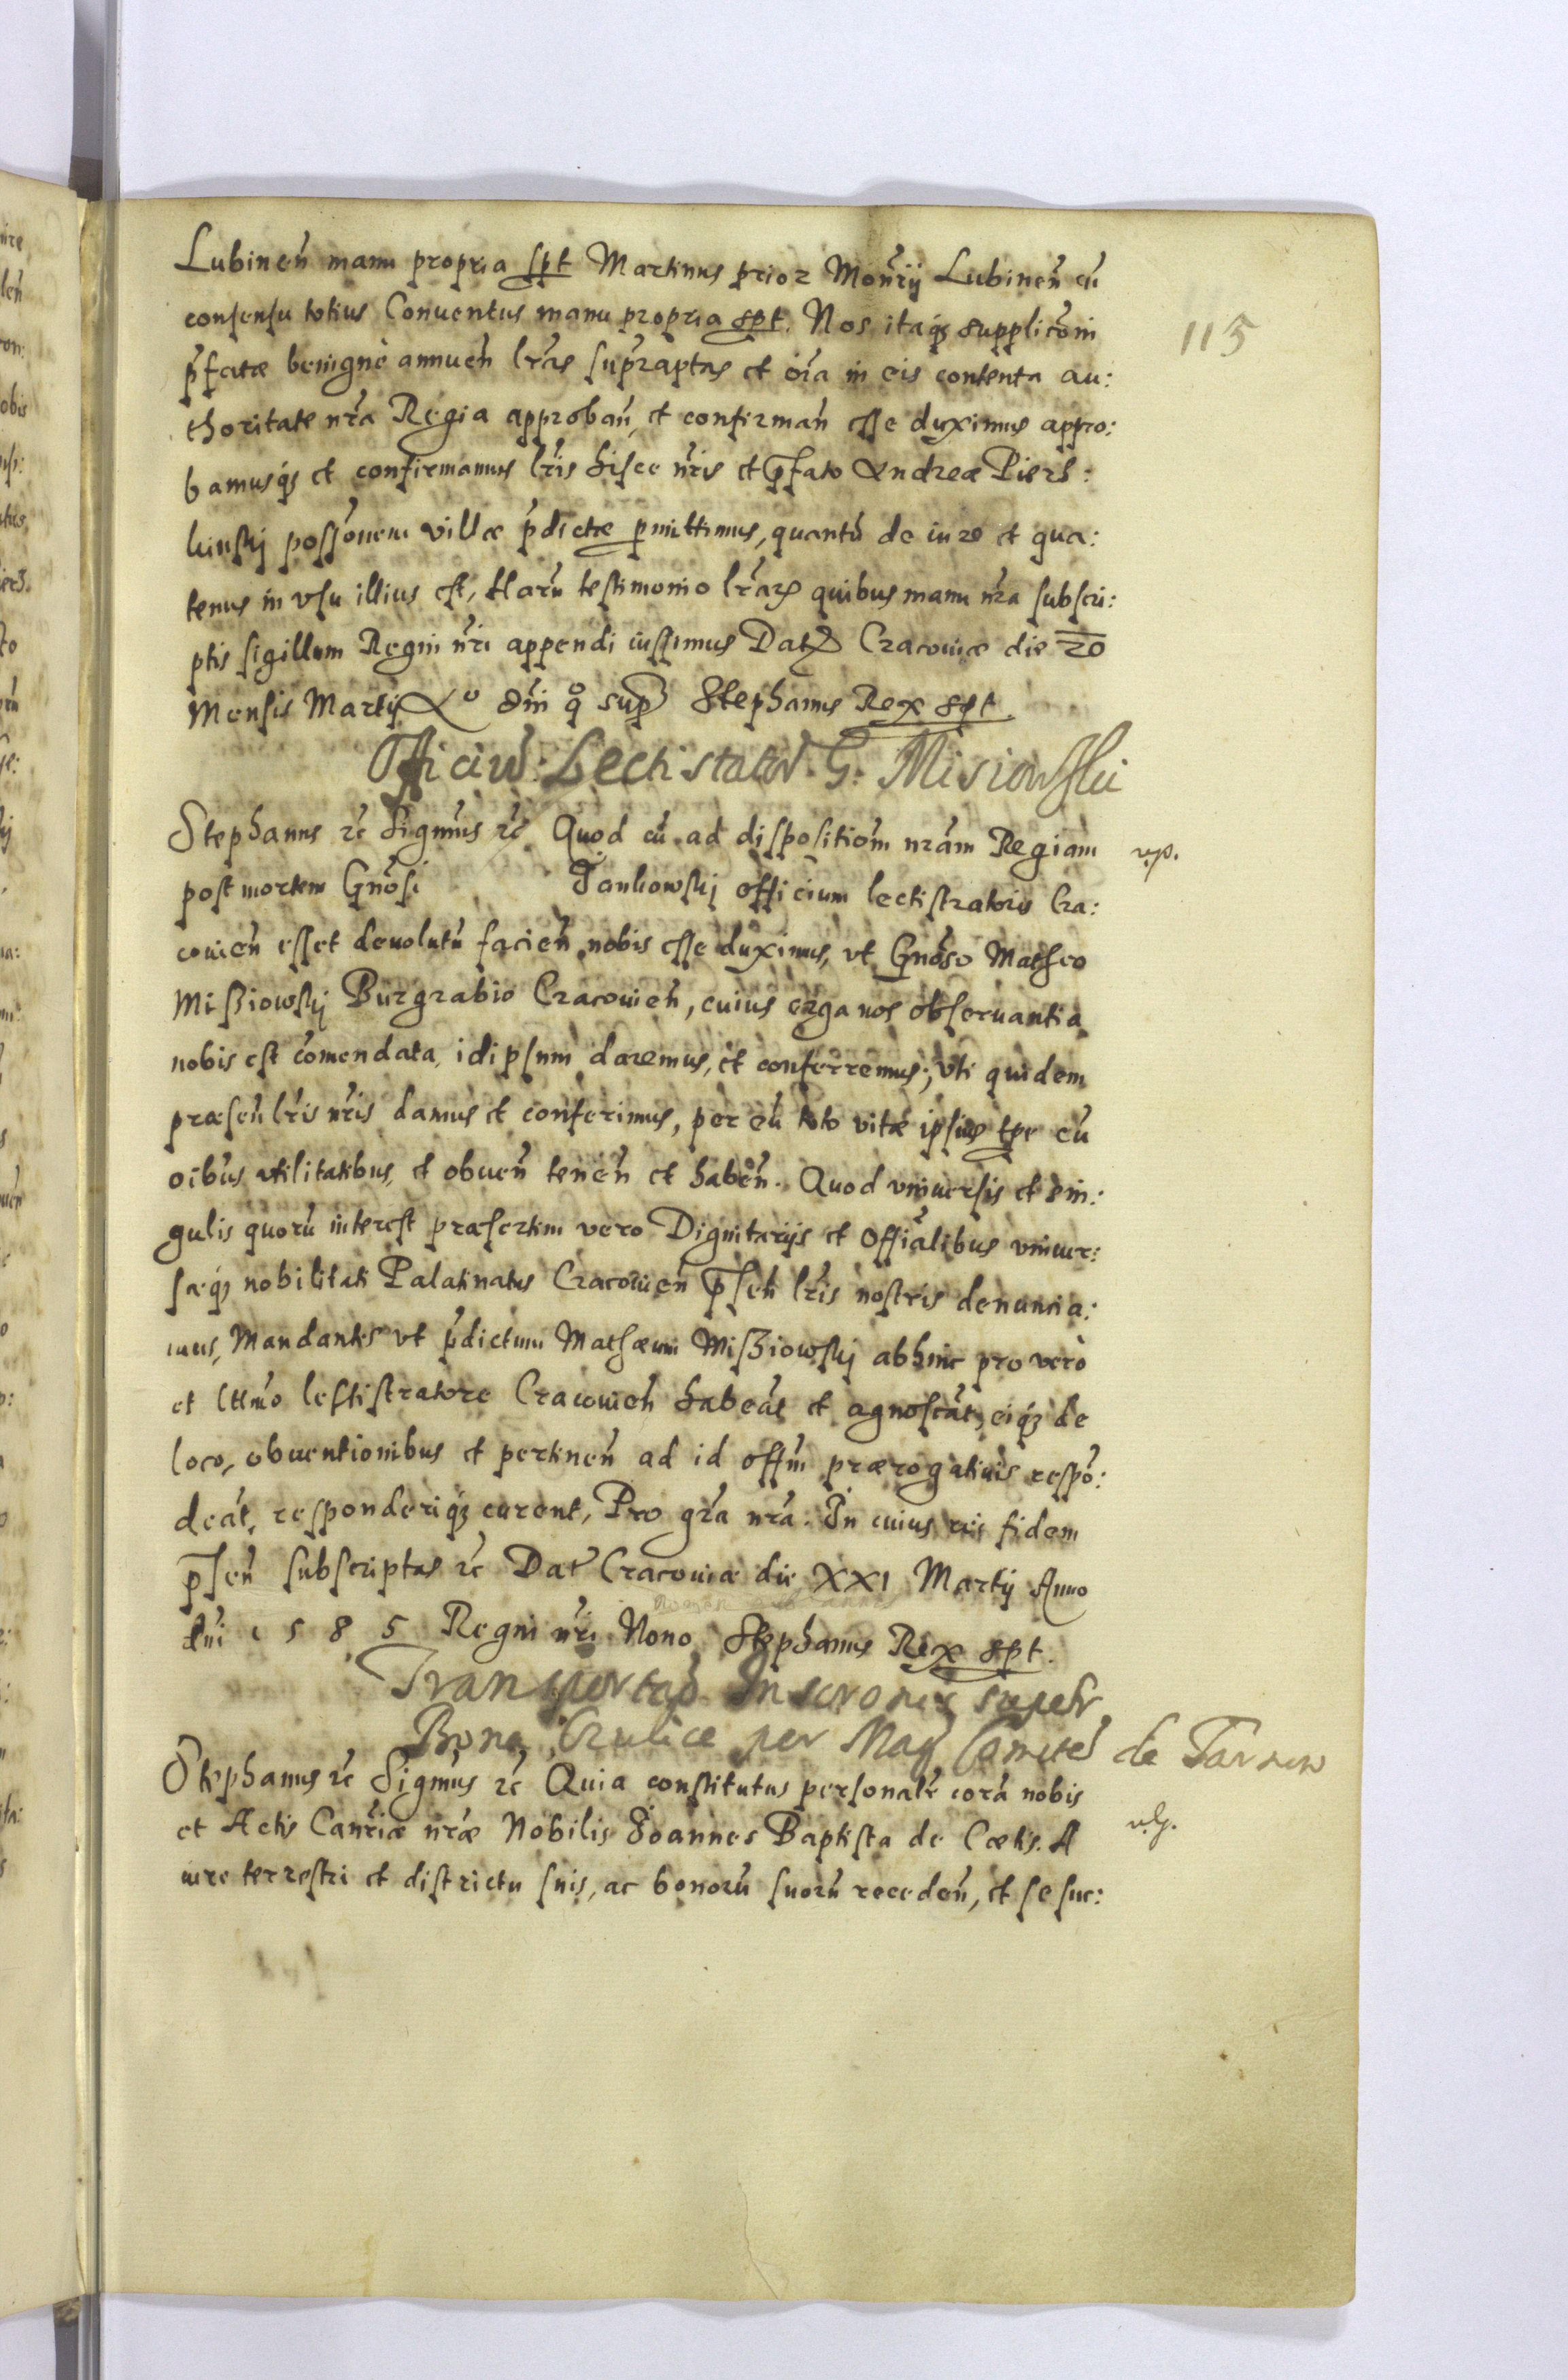 115
Lubineñ manu propria spt Martinus prior Moñrij Lubineñ cū
consensu totius Conuentus manu propria spt. Nos itaq₃ supplicōni
p̃fatæ benignè annueñ lr̃as sup̃raptas et oīa in eis contenta au:
thoritate nr̃a Regia approbañ, et confirmañ esse duximus appro:
bamusq₃ et confirmamus lr̃is hisce nr̃is et p̃fato Andreæ Piers:
kinskj possōnem villæ p̃dictæ p̱mittimus, quantū de iure et qua:
tenus in vsu illius est, Harū testimonio lr̃aꝝ quibus manu nr̃a subscri:
ptis sigillum Regni nr̃i appendi iussimus Datꝫ Cracouiæ die 20
Mensis Martij Aº dñi q̊ supᷓ Stephanus Rex spt.
Officiū Lectistator̃ G. Misiowskii
Stephanus rc̃ Signũs rc̃ Quod cū ad dispositiōm nr̃am Regiam
vp.
post mortem Gnōsi Jankowskj officium lectistratoris Cra:
couieñ esset deuolutū facieñ nobis esse duximus, vt Gnōso Matheo
Mißiowskj Burgrabio Cracouieñ, cuius erga nos obseruantia
nobis est cōmendata, idipsum daremus, et conferremus; vti quidem
præseñ lr̃is nr̃is damus et conferimus, per eū toto vitæ ipsius tp̱e cū
oībus vtilitatibus, et obueñ teneñ et habeñ. Quod vniuersis et sin:
gulis quorū interest præsertim vero Dignitarijs et Offiālibus vniuer:
sæq₃ nobilitati Palatinatus Cracouieñ p̃señ lr̃is nostris denuncia:
mus, Mandantes vt p̃dictum Mathæum Mißiowskj abhinc pro verò
et lttīmo lectistratore Cracouieñ habeāt et agnoscāt, eiq₃ de
loco, obuentionibus et pertineñ ad id offm̃ prærogatiuis respō:
deāt, responderiq₃ curent, Pro gr̃a nr̃a. In cuius rei fidem
p̃señ subscriptas rc̃ Dat̃ Cracouiæ die XXI Martij Anno
dñi 1585 Regni nr̃i Nono Stephanus Rex spt.
Transportaō Inscronis super
Bona Crulice per Mag Comitē de Tarnow
Stephanus rc̃ Signũs rc̃ Quia constitutus personalr̃ corā nobis
et Actis Canr̃iæ nr̃æ Nobilis Joannes Baptista de Cætis. A
iure terrestri et districtu suis, ac bonorū suorū recedeñ, et se suc: